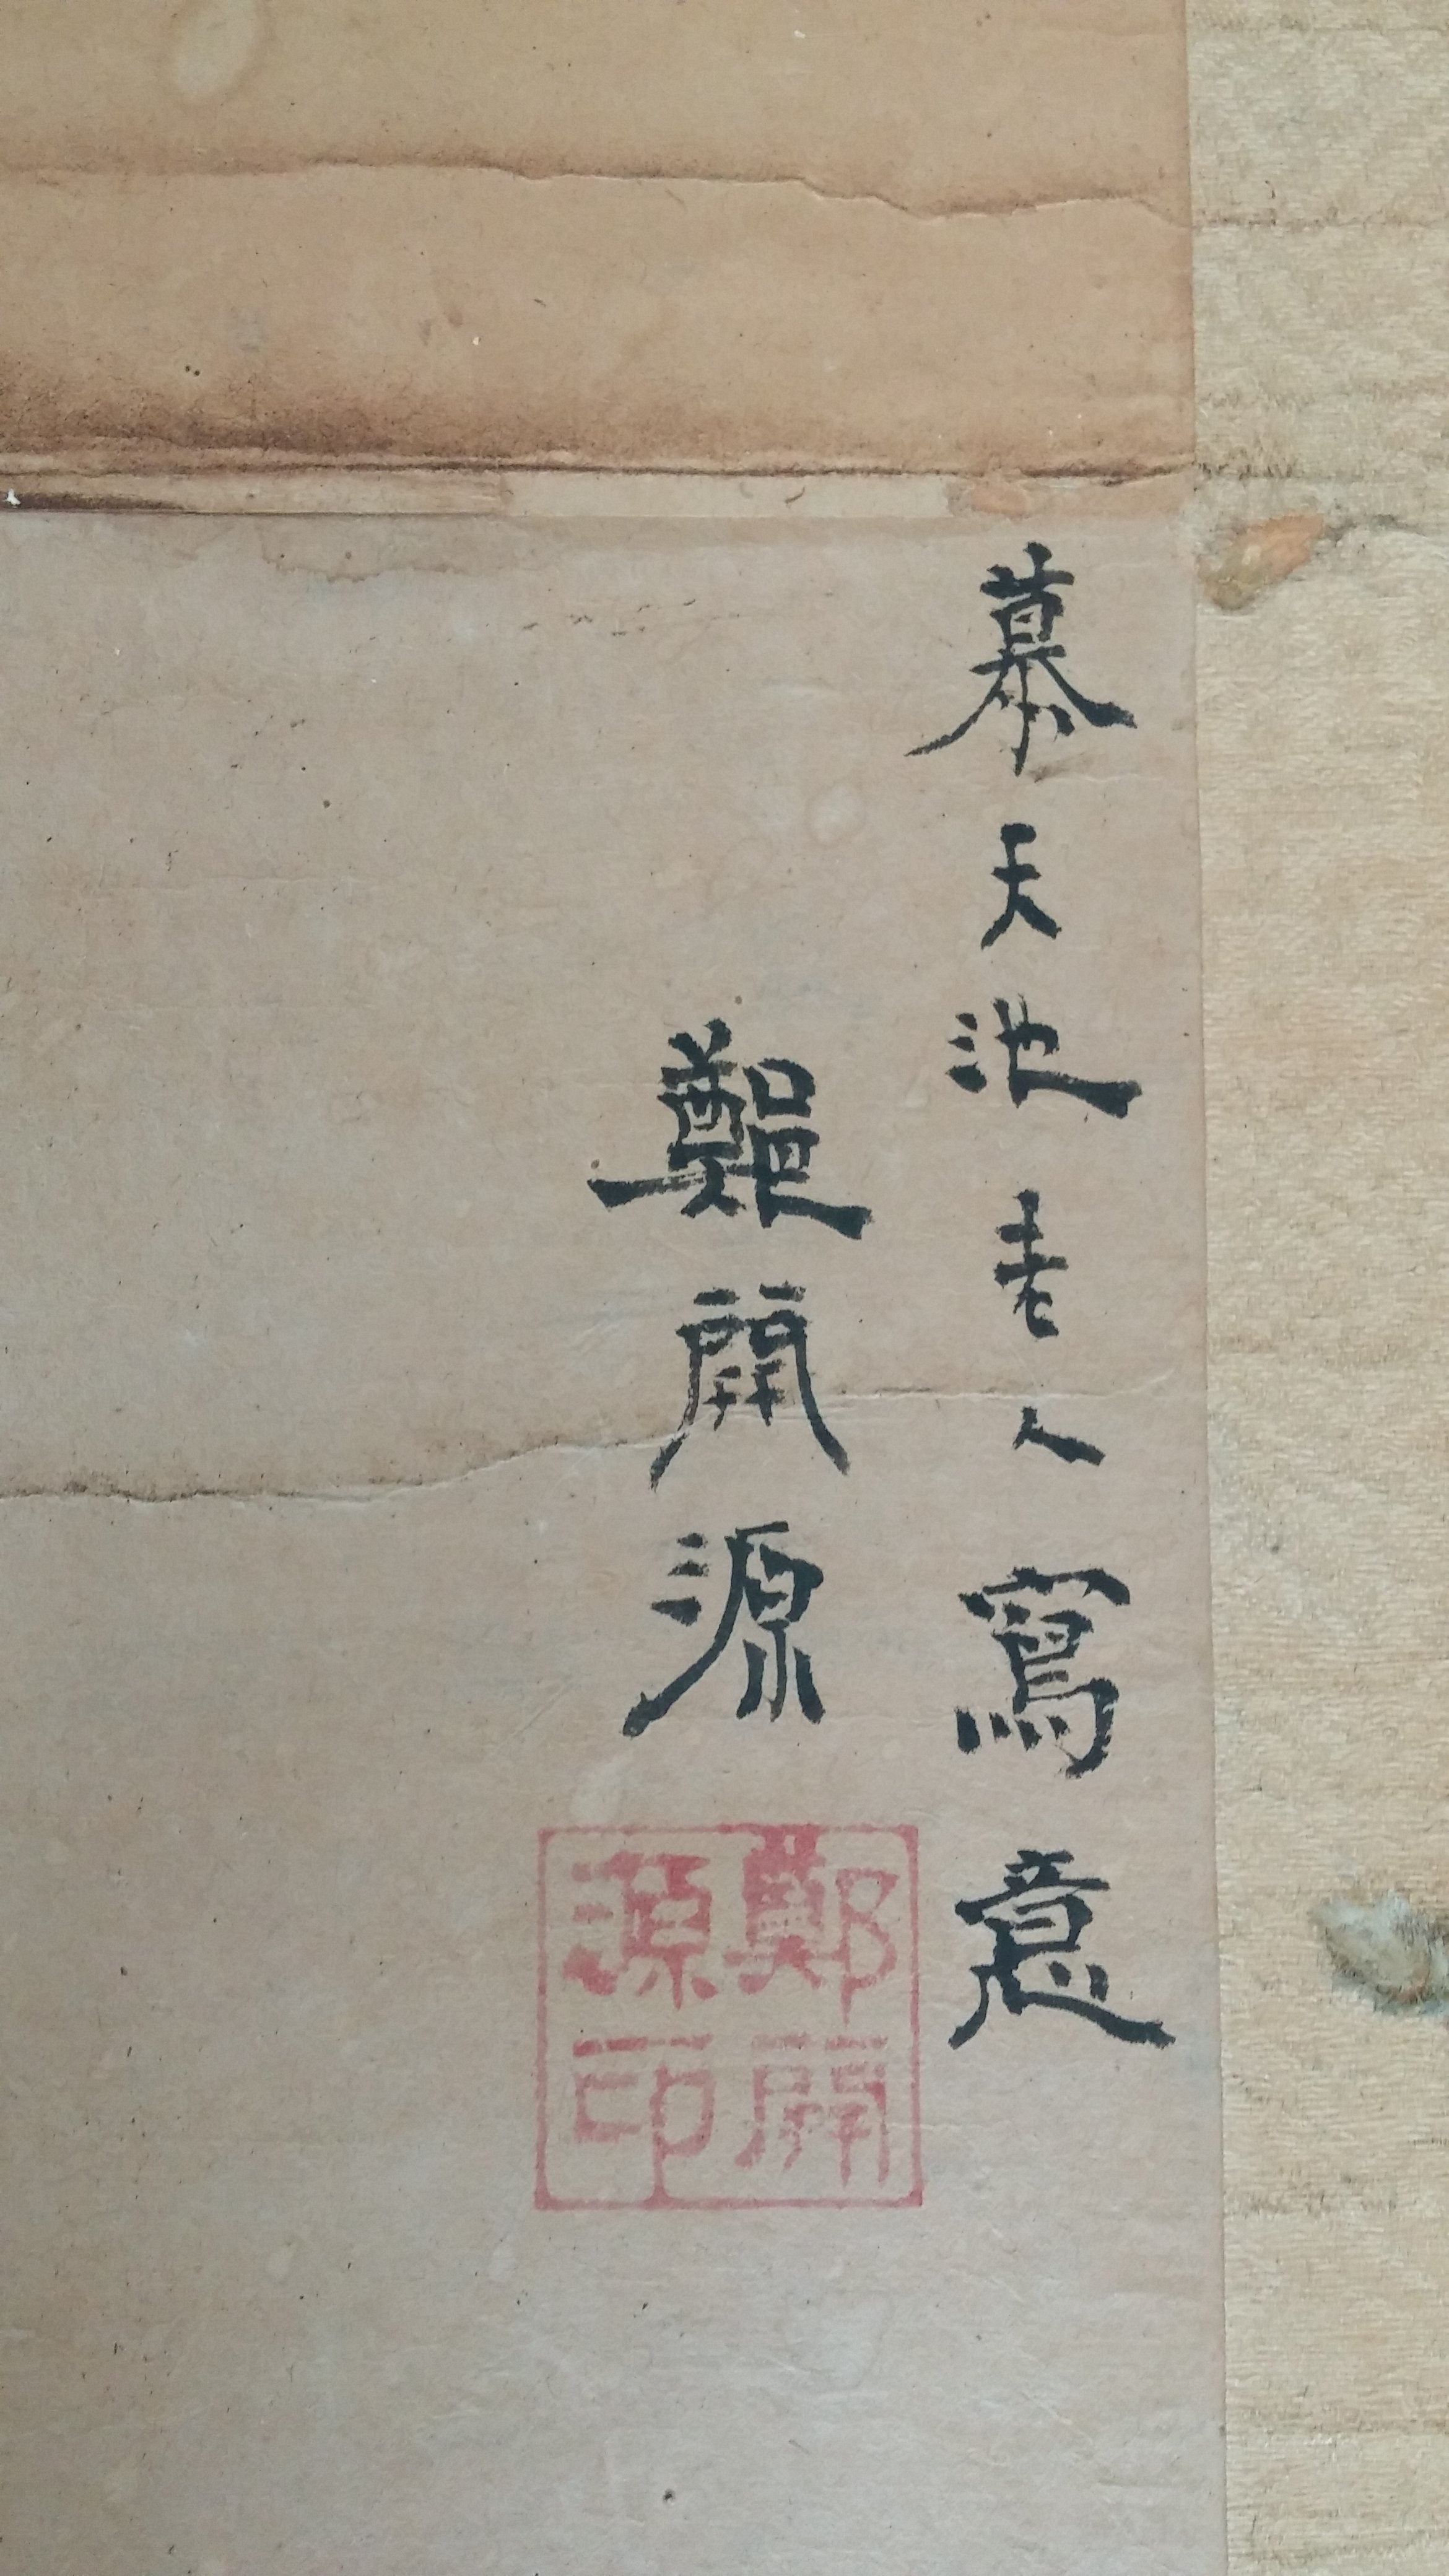 慕天池老人寫意
鄭開源
鄭開源印